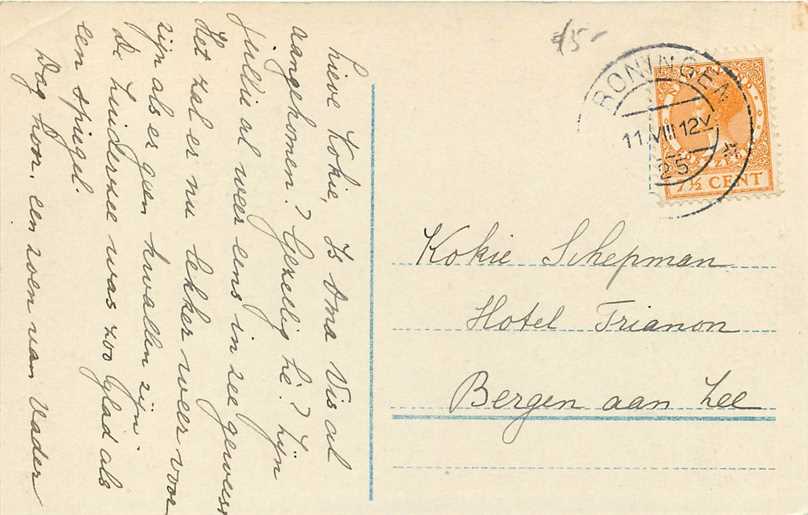 Lieve Kokie, Is Oma Vis al
aangekomen? Gezellig hè? Zijn
jullie al weer eens in zee geweest
Het zal er nu lekker weer voor
zijn als er geen kwallen zijn.
De Zuiderzee was zoo glad als
een spiegel.
Dag hoor, een zoen van Vader
RONINGEN
11.VIII 12V
25
7½ CENT
Kokie Schepman
Hotel Trianon
Bergen aan Zee